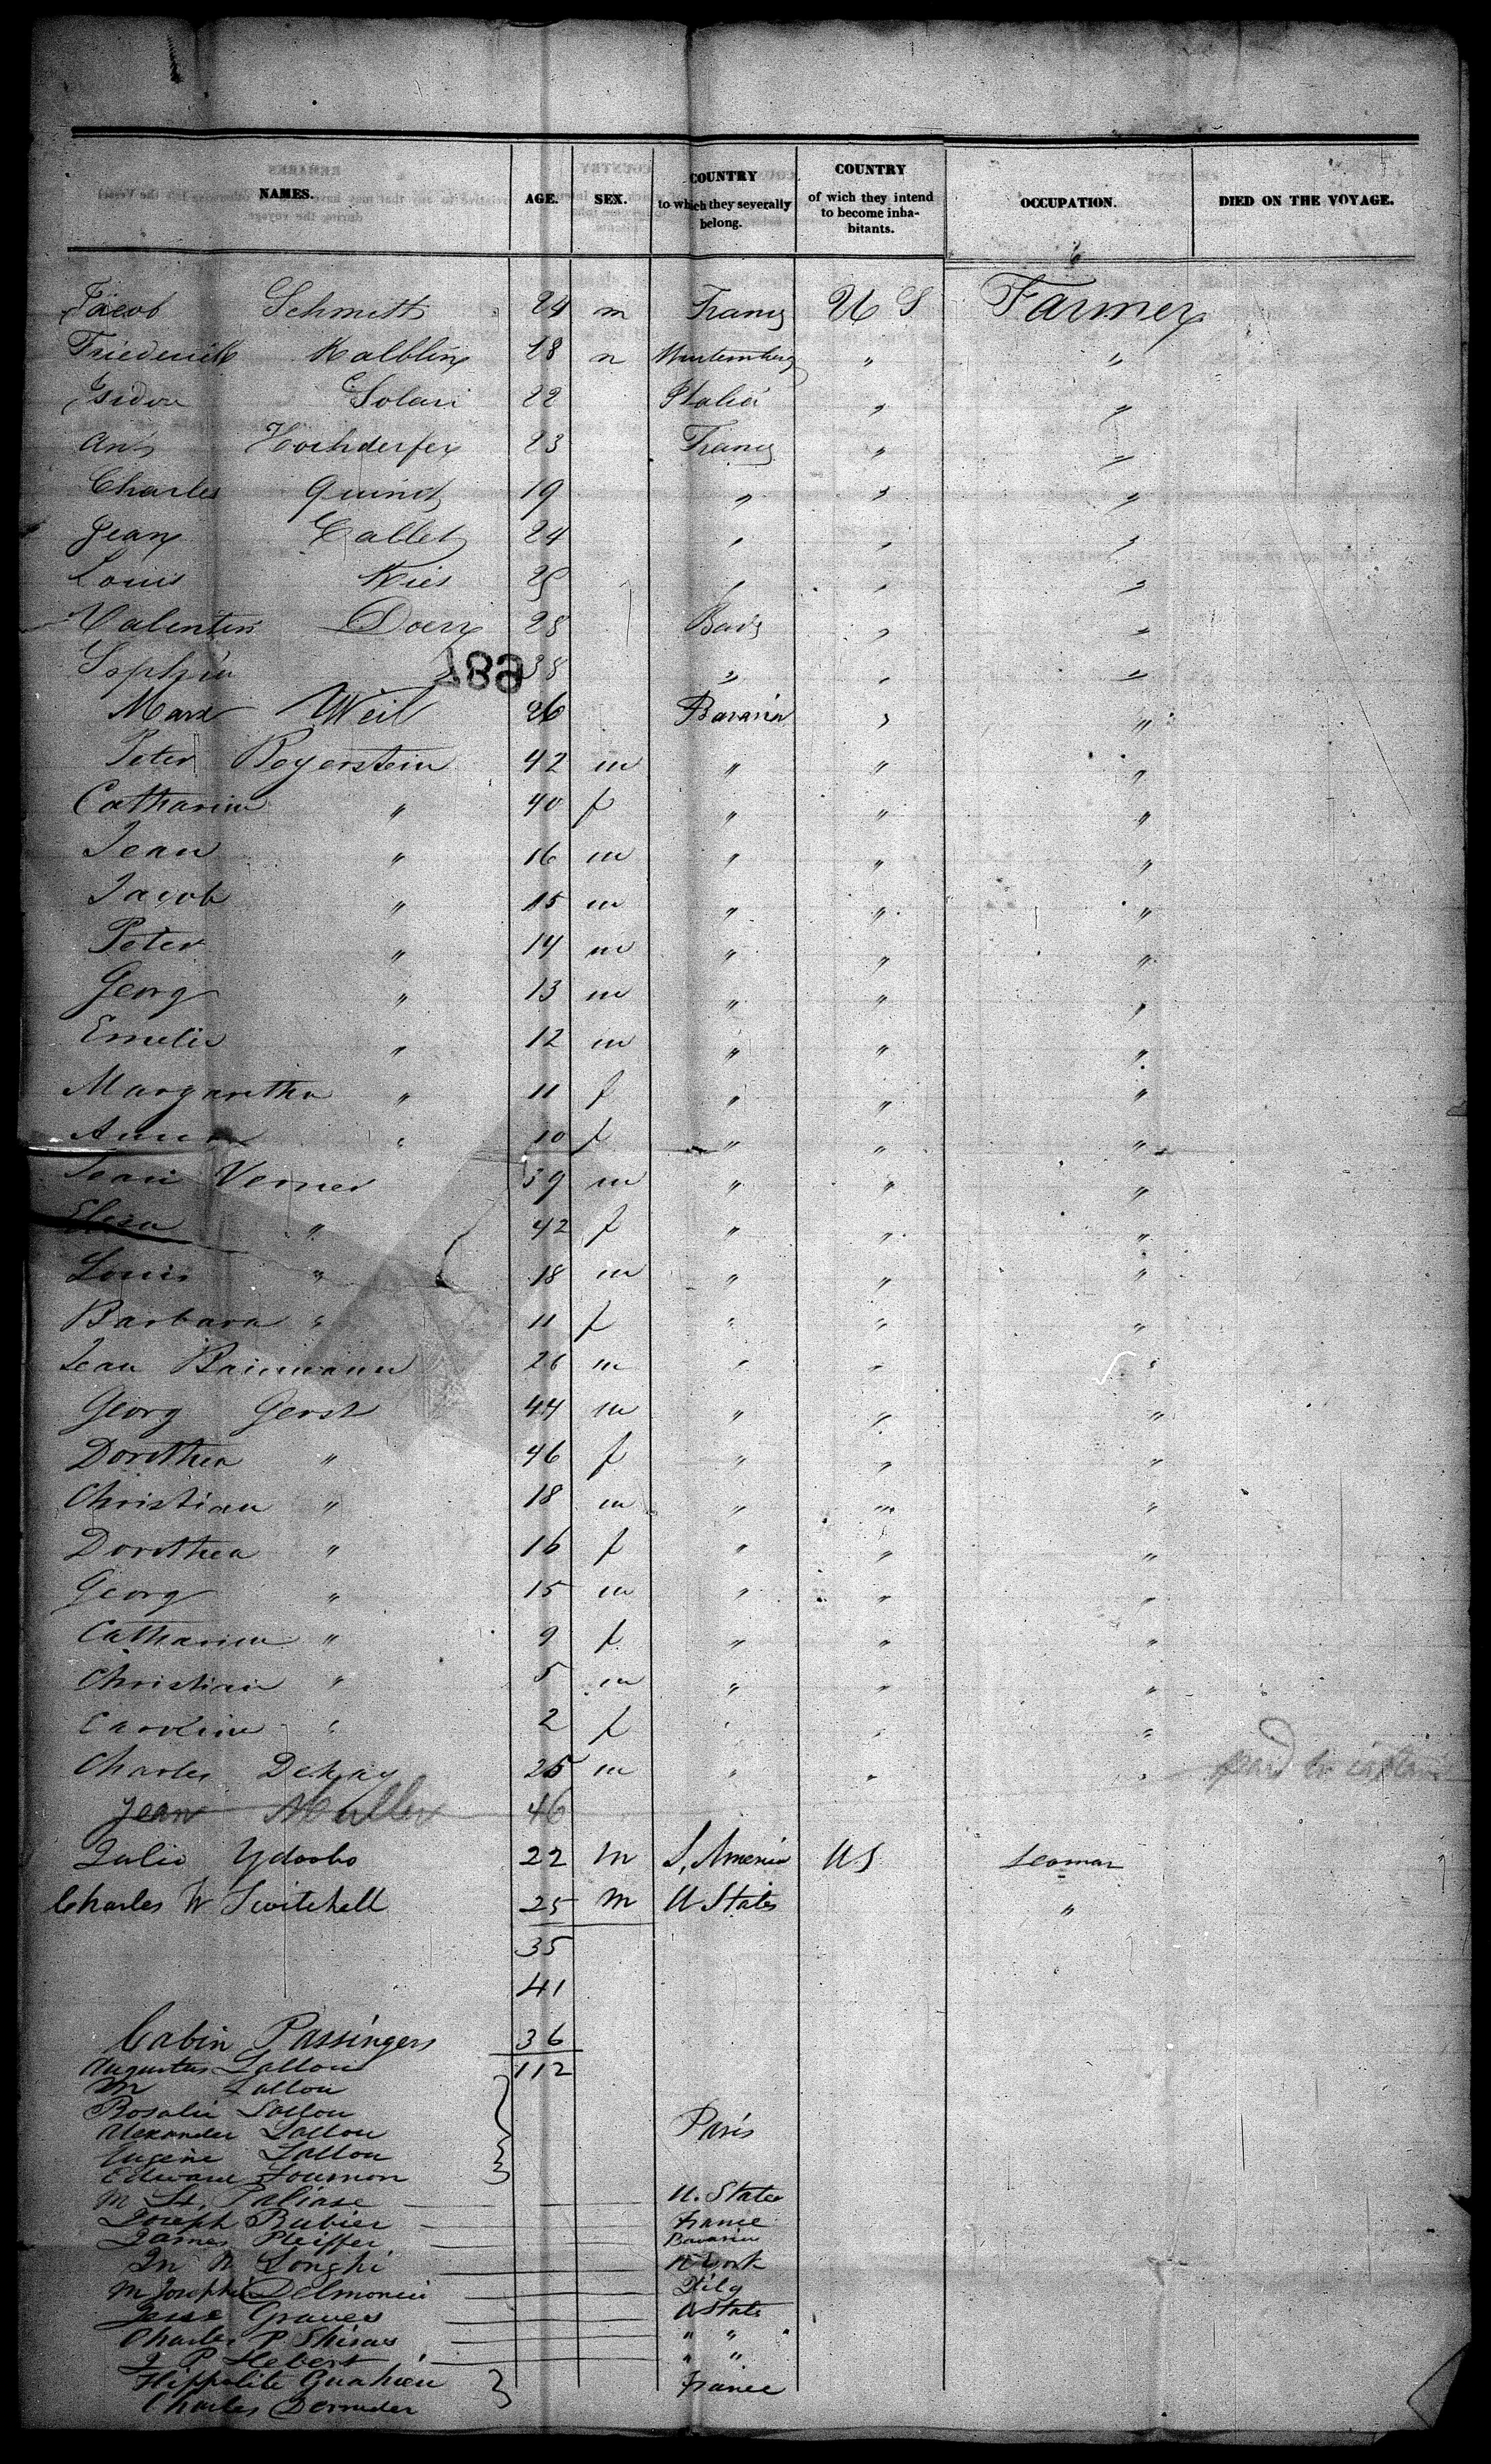 NAMES. AGE. SEX. COUNTRY to which they severally belong. COUNTRY of wich they intend to become inhabitants. OCCUPATION. DIED ON THE VOYAGE.
Jacob Schmitt 24 m France U S Farmer
Friederick Kalblin 28 m Wurtemberg " "
Isidor Solari 22 Italia " "
Ant Hochderfer 23 France " "
Charles Quind 19 " " "
Jean Callet 24 " " "
Louis Kies 25 " " "
Valentin Doerr 28 Bade " "
Sophia " 38 " " "
687
Marx Weil 26 Bavaria " "
Peter Beyerstein 42 m " " "
Catharina " 40 f " " "
Jean " 16 m " " "
Jacob " 15 m " " "
Peter " 14 m " " "
Georg " 13 m " " "
Emelie " 12 m " " "
Margaretha " 11 f " " "
Anna " 10 f " " "
Jean Verner 39 m " " "
Elisa " 42 f " " "
Louis " 18 m " " "
Barbara " 11 f " " "
Jean Baumann 26 m " " "
Georg Gerst 44 m " " "
Dorothea " 46 f " " "
Christian " 18 m " " "
Dorothea " 16 f " " "
Georg " 15 m " " "
Catharina " 9 f " " "
Christian " 5 m " " "
Caroline " 2 f " " "
Charles Dehay 25 m " " "
Jean Muller 46
Julio Ydoobo 22 m S. America US Seaman
Charles W Twitchell 25 m U States "
35
41
Cabin Passingers 36
Augustus Lallou 112
M Lallou
Rosalie Lallou
Alexander Lallou Paris
Eugene Lallou
Edward Fournon
M St. Paliase U. States
Joseph Bubier France
James Pleiffer Bavaria
Jn Longhi N York
M Josephine Delmonico Italy
Jesse Graves U States
Charles P Shiras " "
J P Hebert " "
Hippolite Guahieu France
Charles Dernuder